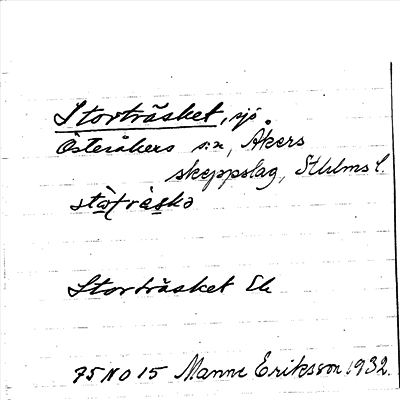 Storträsket, sjö
Österåkers s:n, Åkers
skeppslag, Sthlms l.
stòrtràskə
Storträsket Ek
75 NO 15 Manne Eriksson 1932.